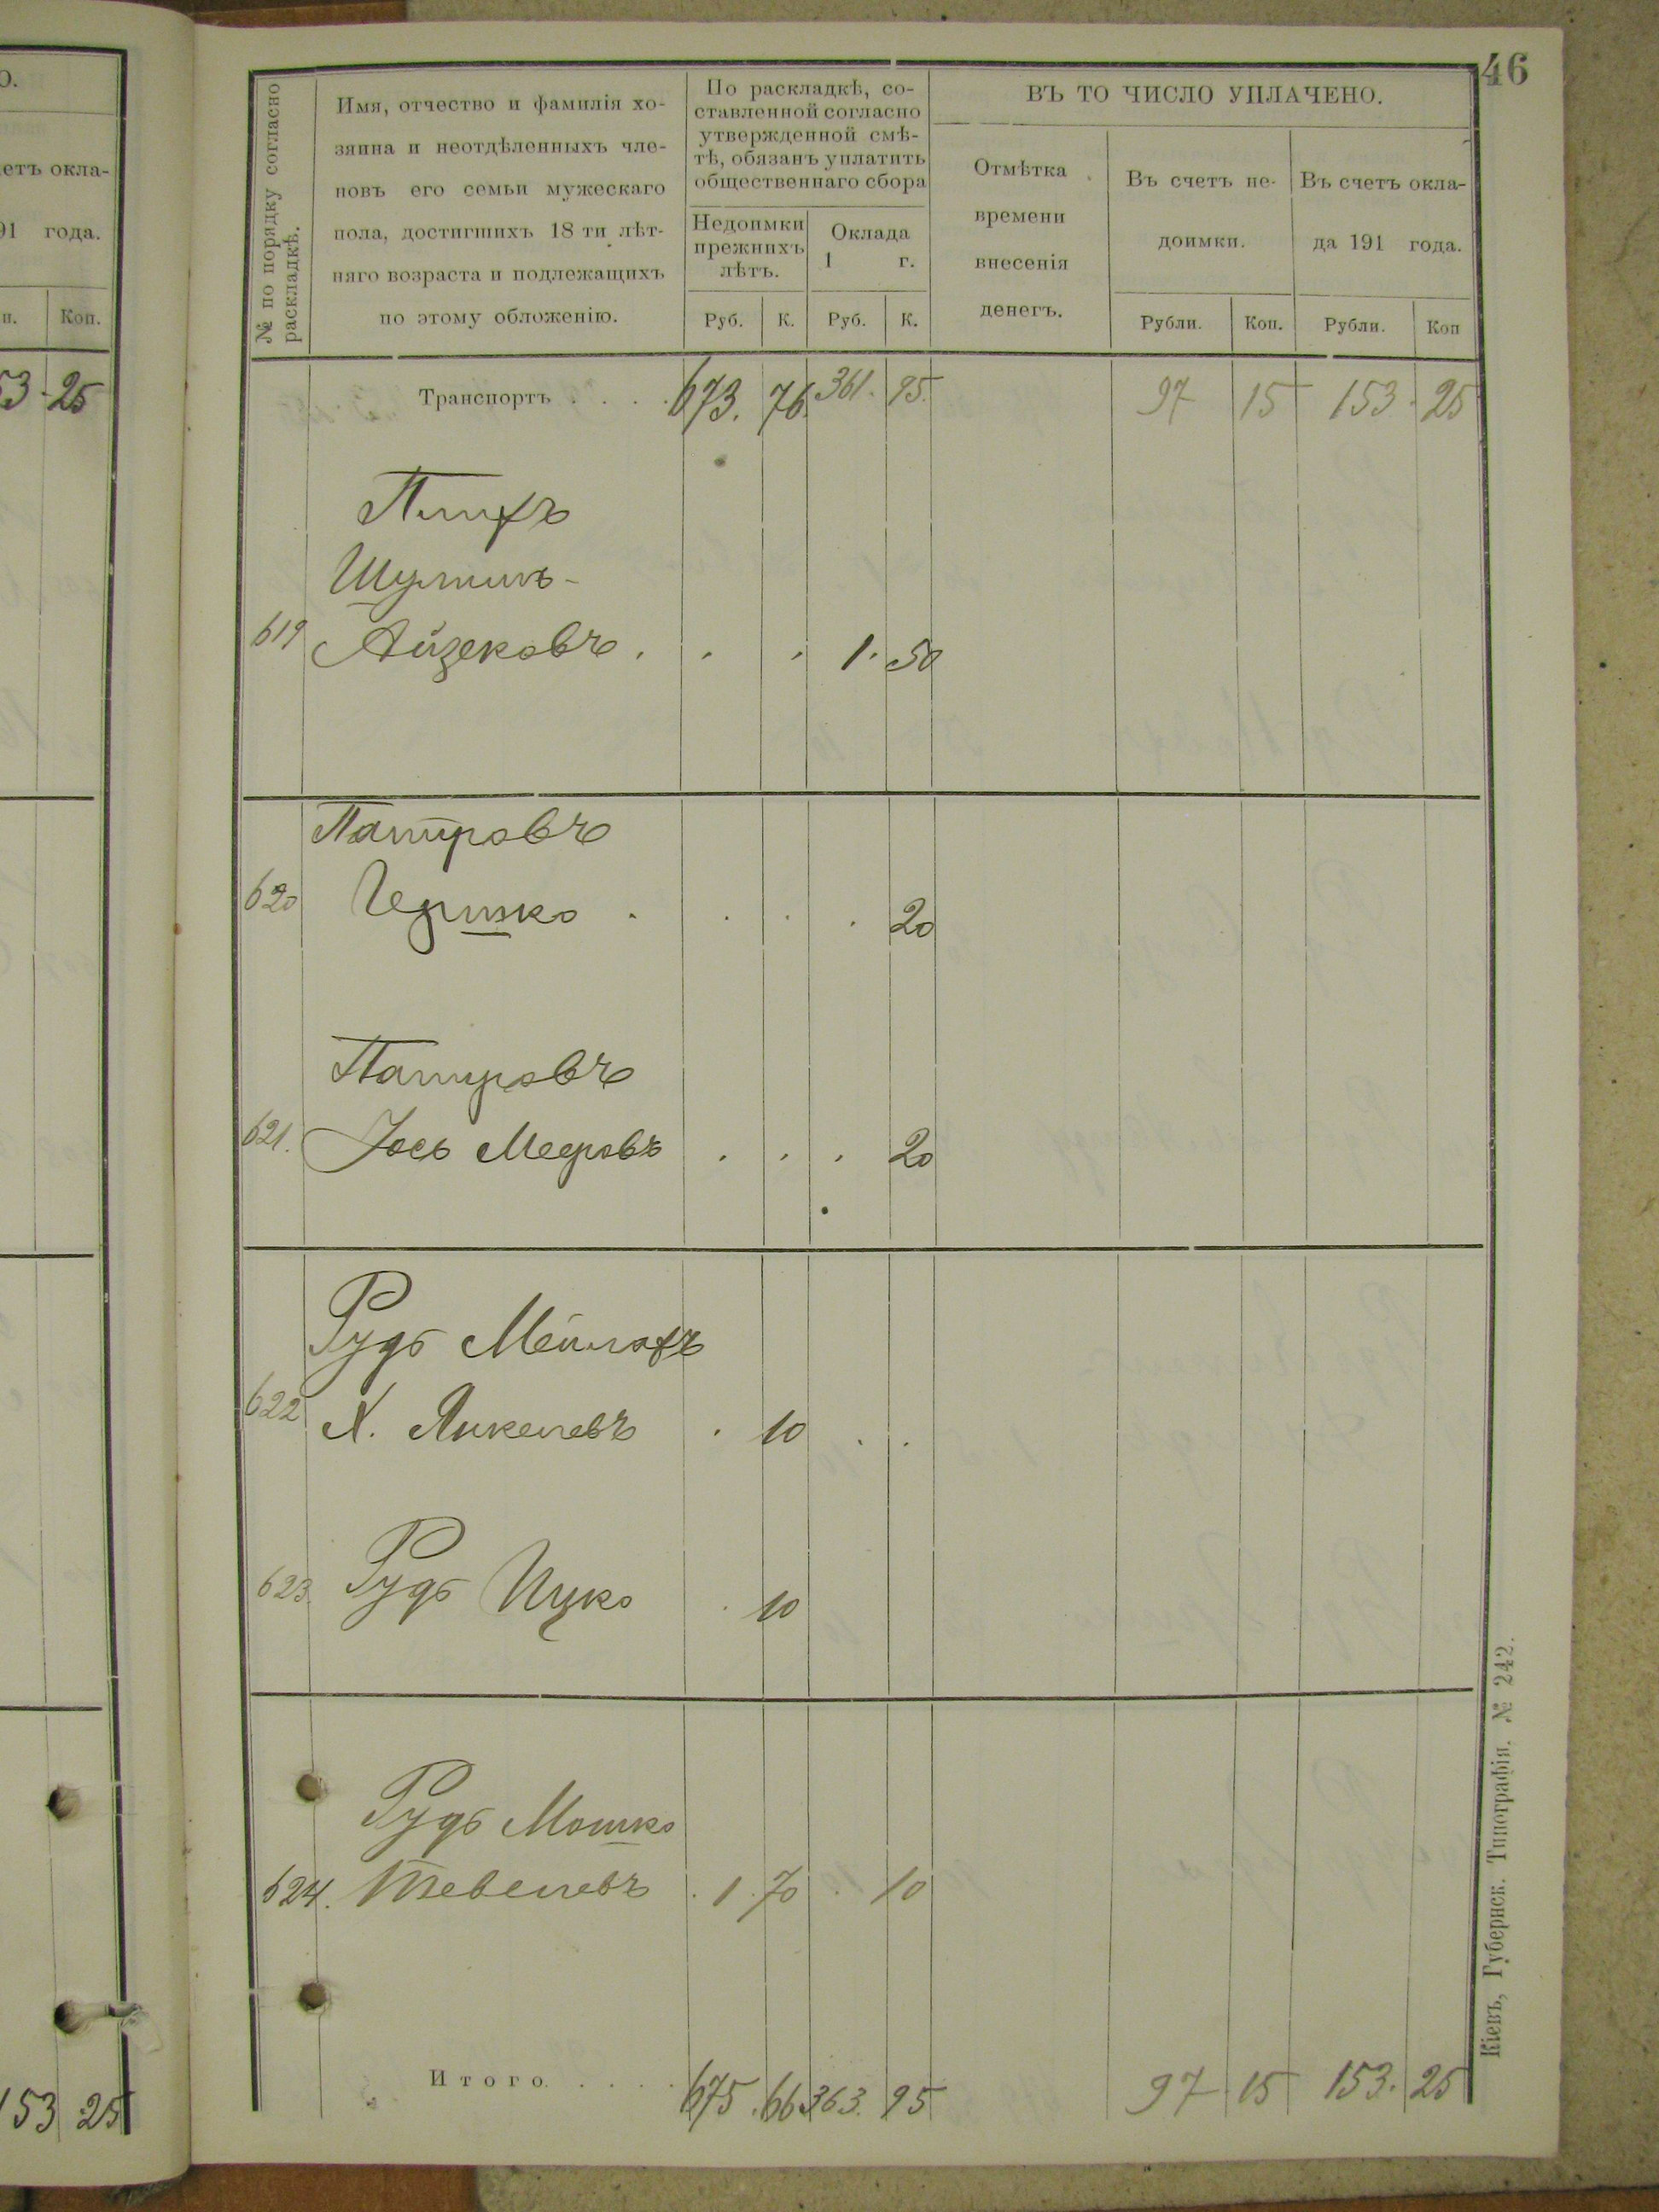 О.
етъ окла-
91 года.
п. Коп.
53 25
153 25
46
№ по порядку согласно
раскладкѣ.
Имя, отчество и фамилія хо-
зяина и неотдѣленныхъ чле-
новъ его семьи мужескаго
пола, достигшихъ 18 ти лѣт-
няго возраста и подлежащихъ
по этому обложенію.
По раскладкѣ, со-
ставленной согласно
утвержденной смѣ-
тѣ, обязанъ уплатить
общественнаго сбора
Недоимки
прежнихъ
лѣтъ.
Оклада
1 г.
Руб. К. Руб. К.
ВЪ ТО ЧИСЛО УПЛАЧЕНО.
Отмѣтка
времени
внесенія
денегъ.
Въ счетъ не-
доимки.
Рубли. Коп.
Въ счетъ окла-
да 191 года.
Рубли. Коп
Транспортъ . . . . 673. 76. 361. 95. 97 15 153. 25
Шулимъ-
619 Айзековъ . . . 1. 50
Патуровъ
620 Гершко . . . . 20
Патуровъ
621. Іось Мееровъ . . . 20
Рудъ Мейлахъ
622 Х. Янкелевъ . 10 . .
623. Рудъ Ицко . 10
Рудъ Мошко
624. Тевелевъ . 1. 70 . 10
Итого. . . . . 675. 66. 363. 95 97 15 153. 25
Кіевъ, Губернск. Типографія. № 242.